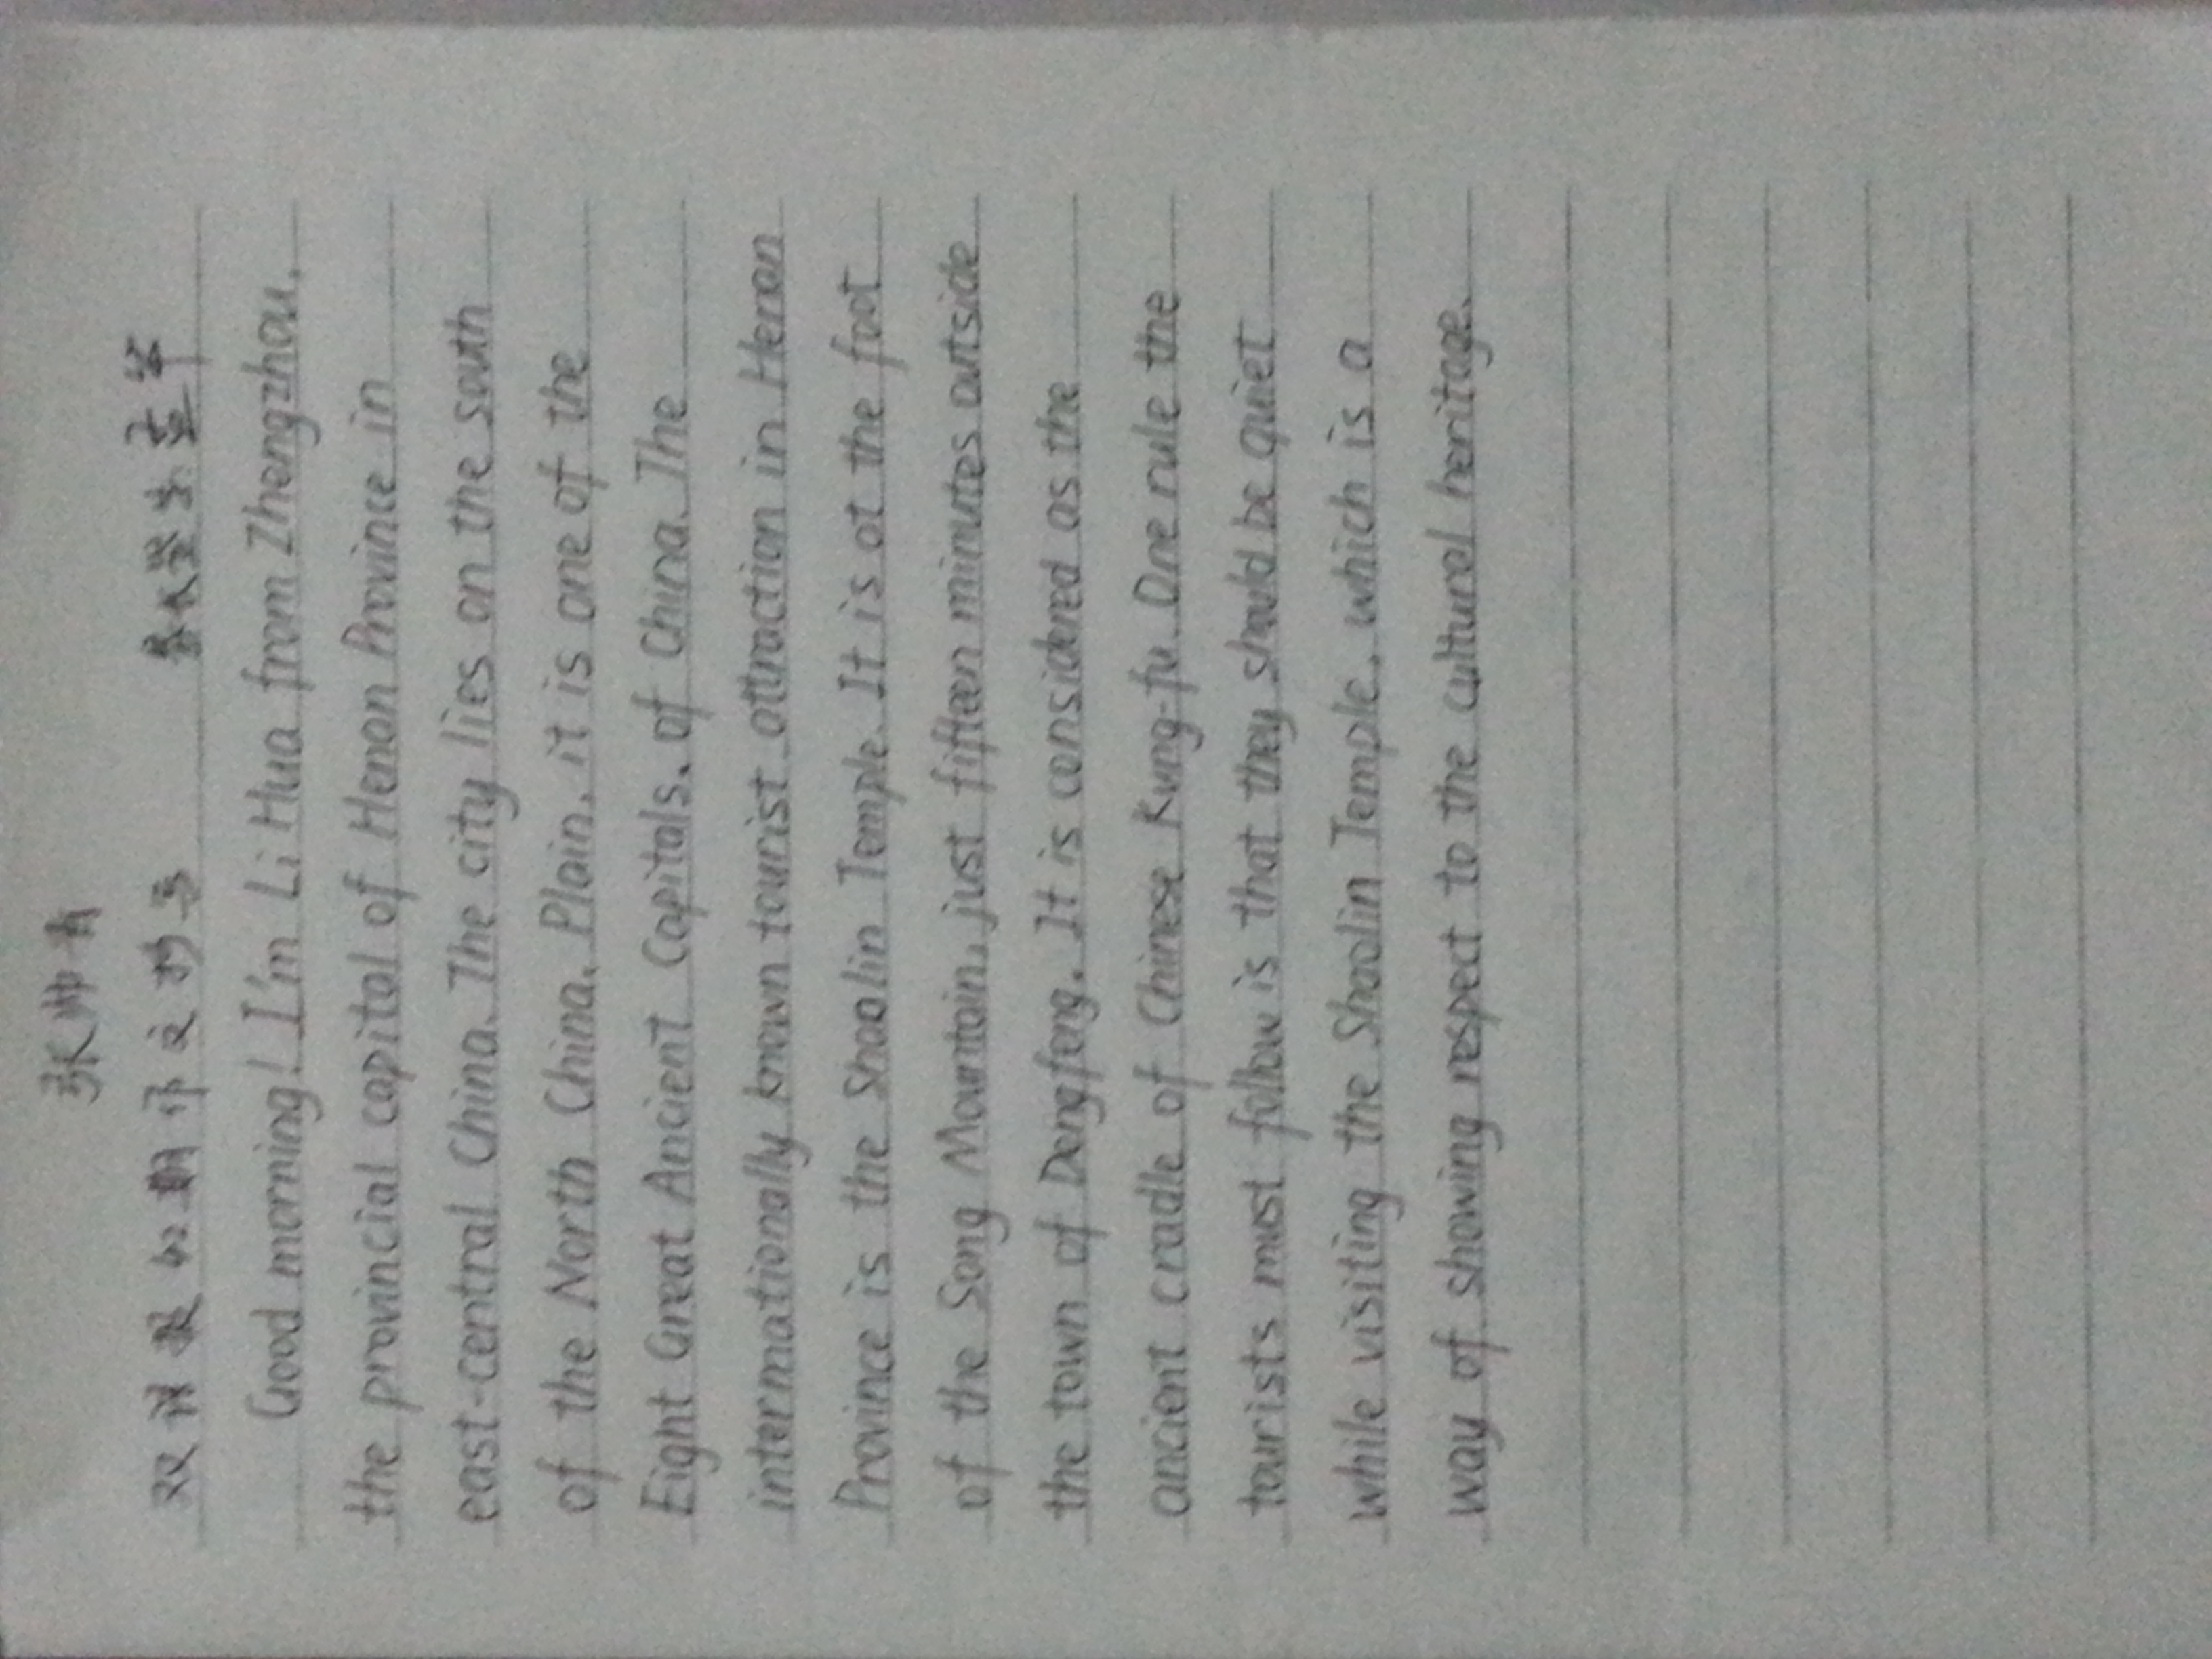 张帅
双语报 期作文
Good morning! I'm Li Hua from Zhengzhou,
the provincial capital of Henan Province in
east-central China. The city lies on the south
of the North China. Plain. it is one of the
Eight Great Ancient Capitals. of China. The
internationally known tourist attraction in Henan
Province is the Shaolin Temple. It is at the foot
of the Song Mountain, just fifteen minutes outside
the town of Dengfeng. It is considered as the
ancient cradle of Chinese Kung-fu. One rule the
tourists must follow is that they should be quiet
while visiting the Shaolin Temple, which is a
way of showing respect to the cultural heritage.